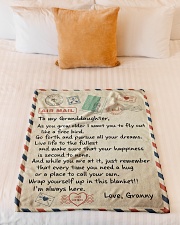 AIR MAIL
To my Granddaughter,
As you grow older I want you to fly out
like a free bird.
Go forth and pursue all your dreams.
Live life to the fullest
and make sure that your happiness
is second to none.
And while you are at it, just remember
that every time you need a hug
or a place to call your own.
Wrap yourself up in this blanket!!
I'm always here.
Love, Granny